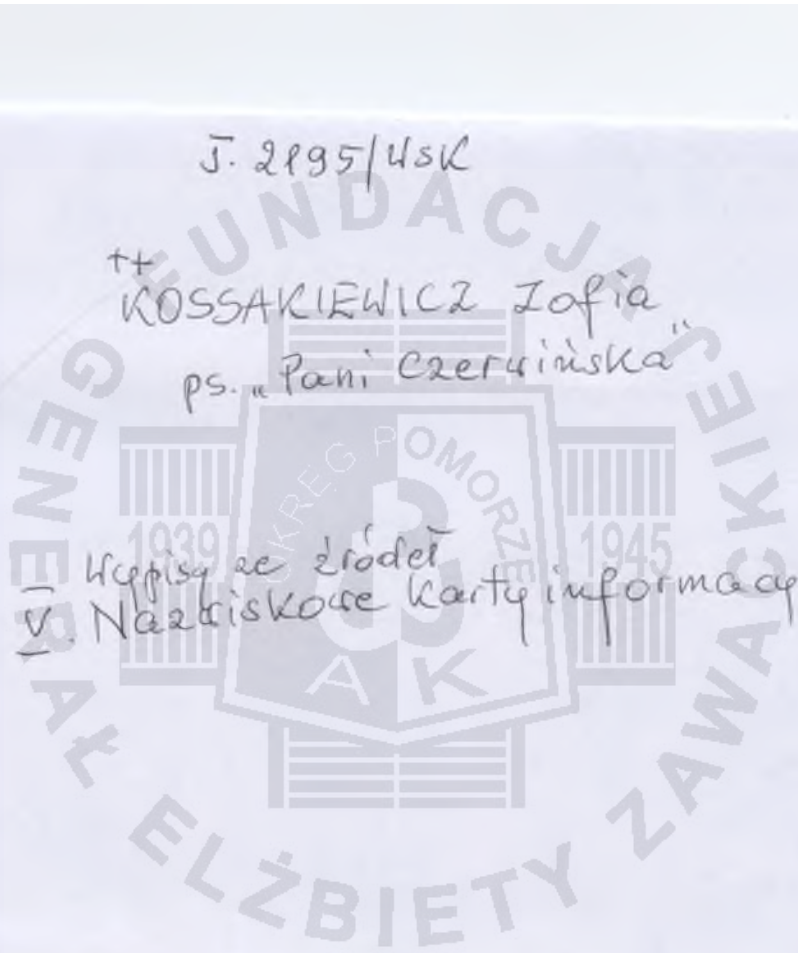 J. 2195/WSK
++
KOSSAKIEWICZ Zofia
ps. „Pani Czerwińska"
Wypisy ze źródeł
V. Nazwiskowe karty informacy
FUNDACJA GENERAŁ ELŻBIETY ZAWACKIEJ
OKRĘG POMORZE
1939 1945
AK